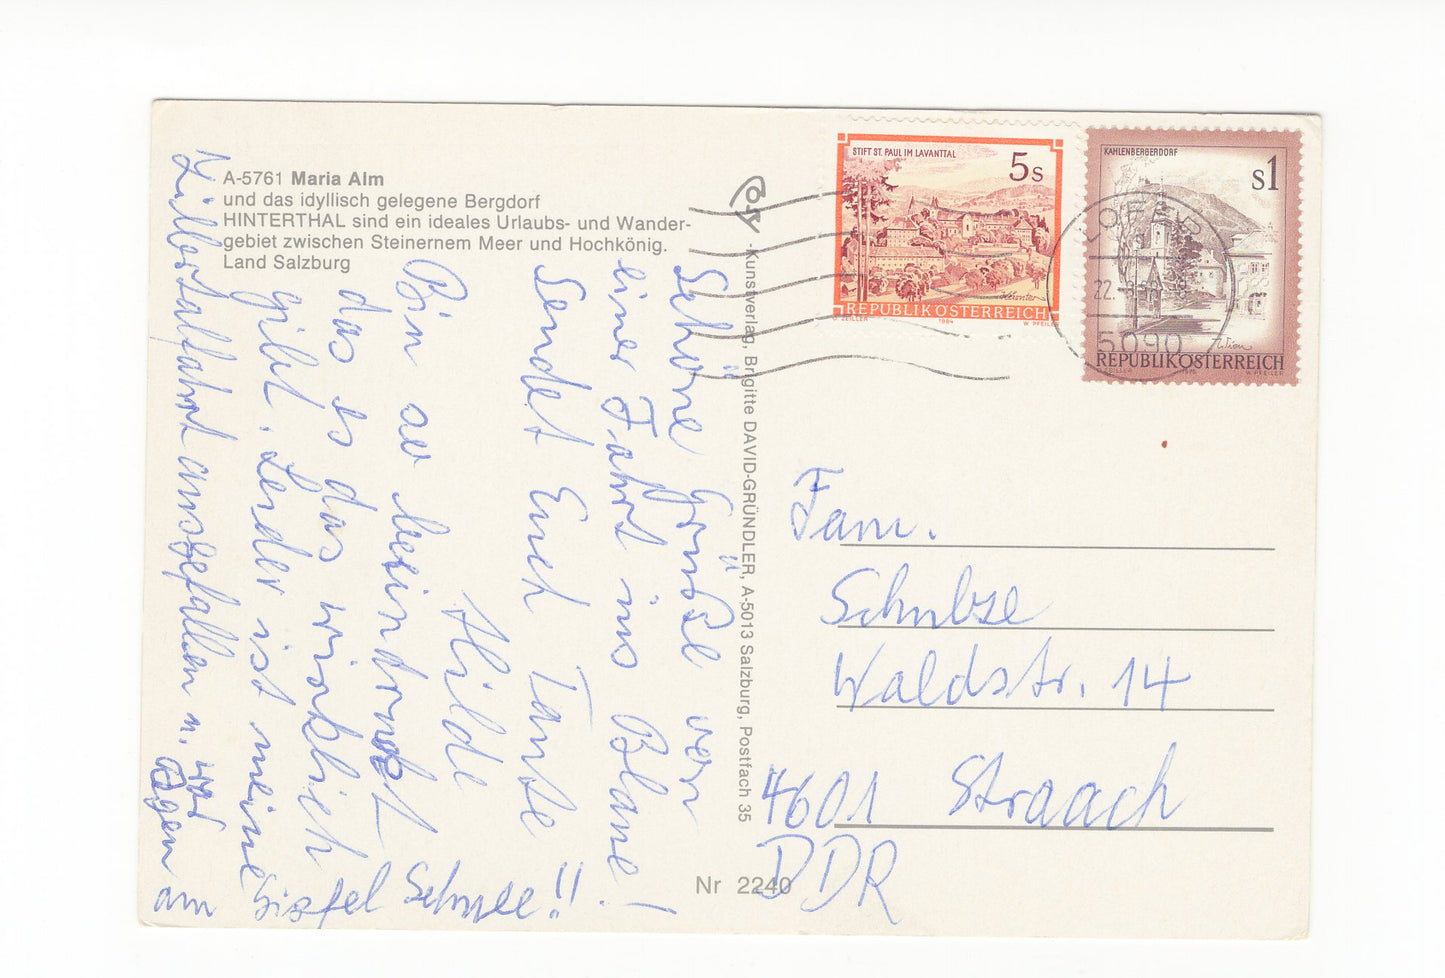 A-5761 Maria Alm
und das idyllisch gelegene Bergdorf
HINTERTHAL sind ein ideales Urlaubs- und Wander-
gebiet zwischen Steinernem Meer und Hochkönig.
Land Salzburg
Schöne Grüße von
einer Fahrt ins Blaue!
Sendet Euch Tante
Hilde
Bin so beeindruckt
das es das wirklich
gibt. Leider ist meine
Zillertalfahrt ausgefallen
Regen
am Gipfel Schnee!!
Cosy -Kunstverlag, Brigitte DAVID-GRÜNDLER, A-5013 Salzburg, Postfach 35
Nr 2240
STIFT ST. PAUL IM LAVANTTAL
5s
REPUBLIK ÖSTERREICH
O. ZEILLER 1984 W. PFEILER
KAHLENBERGERDORF
S1
REPUBLIK ÖSTERREICH
O. ZEILLER 1975 W. PFEILER
LOFER
22.
5090
Fam.
Schulze
Waldstr. 14
4601 Straach
DDR